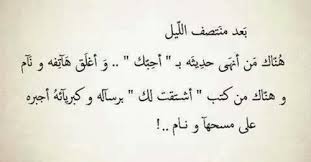 بَعد منْتَصف اللّيل
هُنَاك مَن أنهَى حديثَه بـ " أحِبّك " .. وَ أغلَق هَاتِفه وَ نَآم
و هنَاك من كتب " أشتقت لك " برسآله و كبريآئهُ أجبره
على مسحهآ و نـام ..!